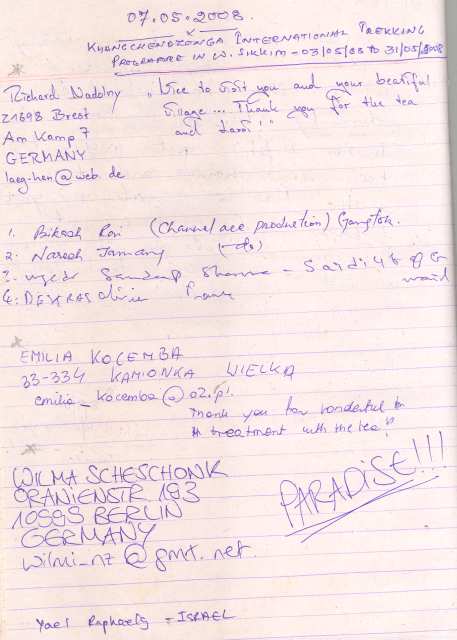 07.05.2008.
KHANGCHENDZONGA INTERNATIONAL TREKKING
PROGRAMME IN W. SIKKIM - 03/05/08 TO 31/05/2008
Richard Nadolny "Nice to visit you and your beatiful
21698 Brest village... Thank you for the tea
Am Kamp 7 and
GERMANY
laeg-hen@web.de
1. Bikash Rai (Channel ace production) Gangtok.
2. Naresh Jamany (-do-)
3. Sandeep Sharma -
4. DEXRAS Olivier France
EMILIA KOCEMBA
33-334 KAMIONKA WIELKA
emilia_kocemba@o2.pl.
Thank you for vonderful
treatment with the tea"
WILMA SCHESCHONK
ORANIENSTR 183
PARADISE!!!
10999 BERLIN
GERMANY
wilmi_nz@gmx.net.
Yael Raphaely - ISRAEL